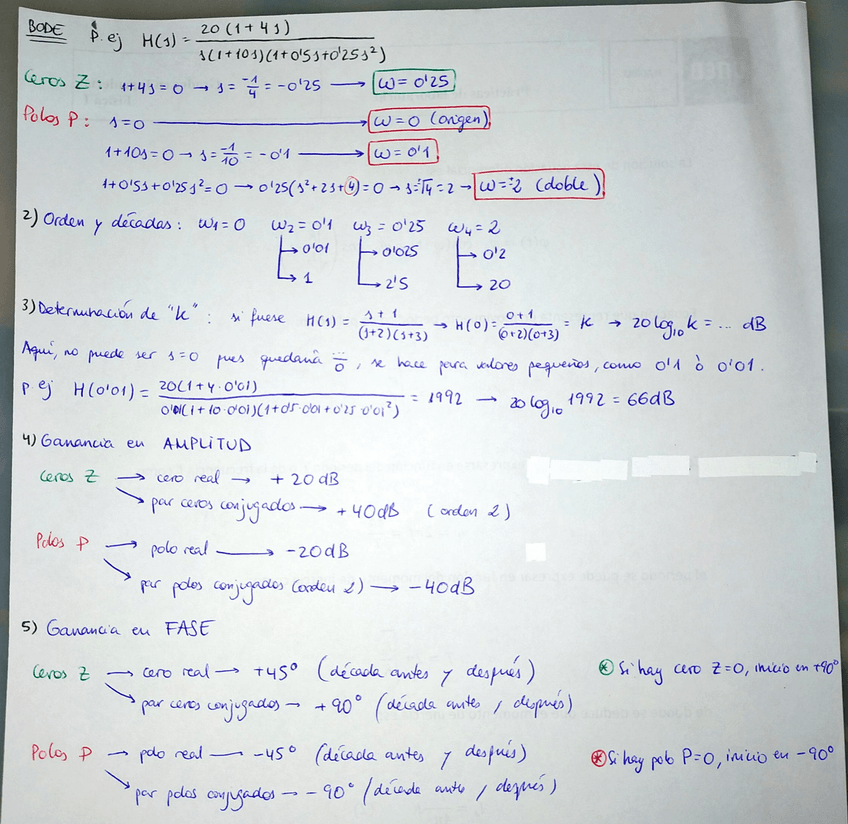 BODE P. ej H(s) = 20(1+4s) / s(1+10s)(1+0'5s+0'25s²)
Ceros Z: 1+4s=0 → s=-1/4=-0'25 → ω=0'25
Polos P: s=0 → ω=0 (origen)
1+10s=0 → s=-1/10=-0'1 → ω=0'1
1+0'5s+0'25s²=0 → 0'25(s²+2s+4)=0 → s=±√4=2 → ω=±2 (doble)
2) Orden y décadas: ω1=0 ω2=0'1 ω3=0'25 ω4=2
→ 0'01 → 0'025 → 0'2
→ 1 → 2'5 → 20
3) Determinación de "k": si fuese H(s) = s+1 / (s+2)(s+3) → H(0) = 0+1 / (0+2)(0+3) = K → 20 log₁₀ k = ... dB
Aquí, no puede ser s=0 pues quedaría .../0, se hace para valores pequeños, como 0'1 ò 0'01.
P. ej H(0'01) = 20(1+4·0'01) / 0'01(1+10·0'01)(1+0'5·0'01+0'25·0'01²) = 1992 → 20 log₁₀ 1992 = 66dB
4) Ganancia en AMPLITUD
Ceros Z → cero real → +20dB
→ par ceros conjugados → +40dB (orden 2)
Polos P → polo real → -20dB
→ par polos conjugados (orden 2) → -40dB
5) Ganancia en FASE
Ceros Z → cero real → +45° (década antes y después) * Si hay cero Z=0, inicio en +90°
→ par ceros conjugados → +90° (década antes y después)
Polos P → polo real → -45° (década antes y después) * Si hay polo P=0, inicio en -90°
→ par polos conjugados → -90° (década antes y después)